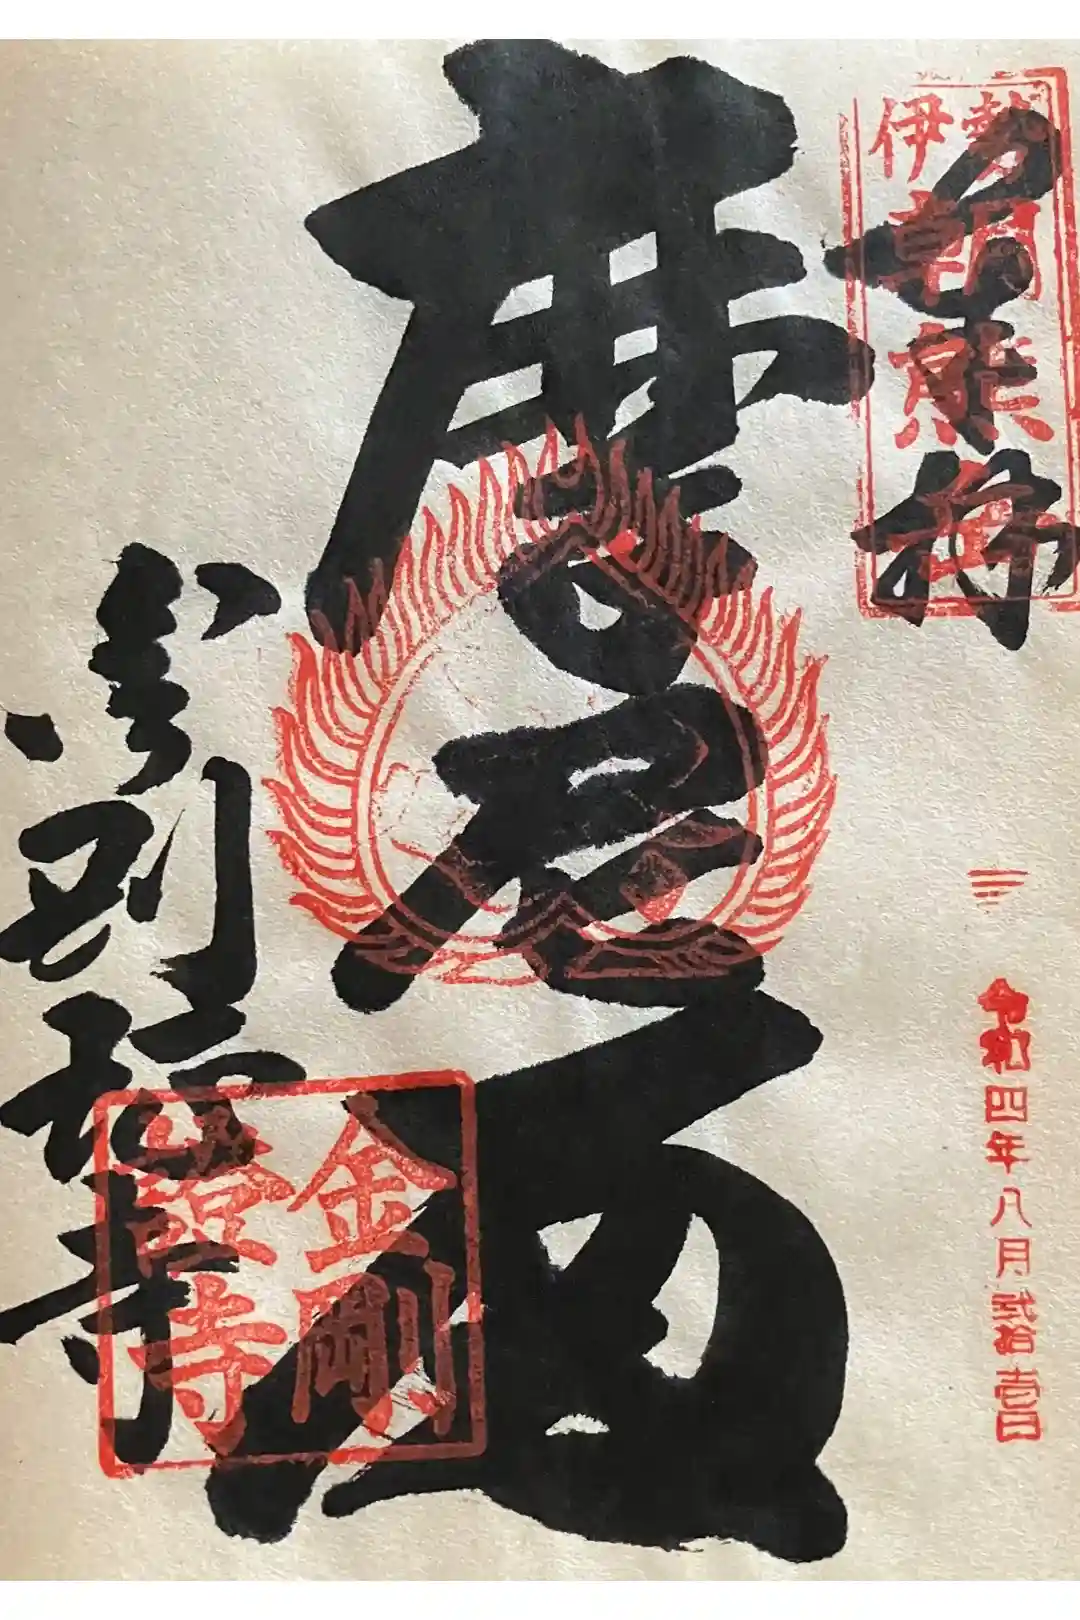 奉拝
伊勢
朝熊
令和四年八月弐拾壱日
摩尼
金剛證寺
金剛
證寺